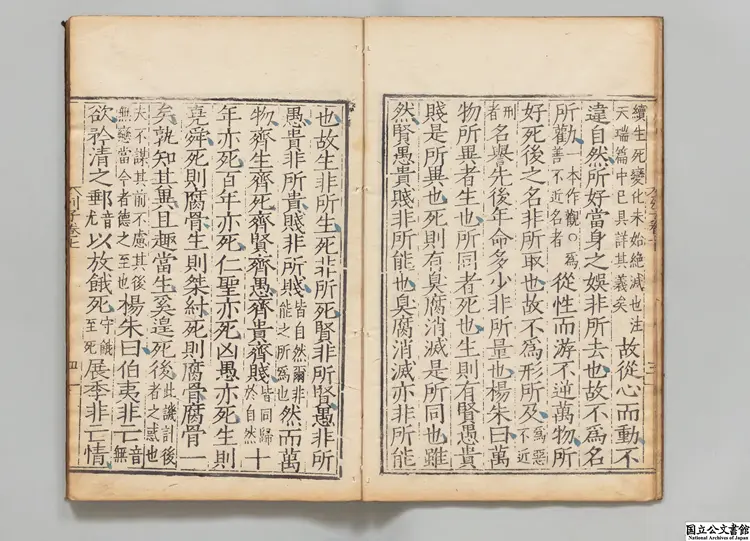 續生死變化未始絶滅也注天瑞篇中已具詳其義矣故從心而動不
違自然所好當身之娛非所去也故不爲名
所勸一本作觀○爲善不近名者從性而游不逆萬物所
好死後之名非所取也故不爲形所及爲惡不近
刑者名譽先後年命多少非所量也楊朱曰萬
物所異者生也所同者死也生則有賢愚貴
賤是所異也死則有臭腐消滅是所同也雖
然賢愚貴賤非所能也臭腐消滅亦非所能
也故生非所生死非所死賢非所賢愚非所
愚貴非所貴賤非所賤皆自然爾非能之所爲也然而萬
物齊生齊死齊賢齊愚齊貴齊賤皆同歸於自然十
年亦死百年亦死仁聖亦死凶愚亦死生則
堯舜死則腐骨生則桀紂死則腐骨腐骨一
矣孰知其異且趣當生奚遑死後此譏計後者之惑也
夫不謀其前不慮其後無戀當今者德之至也楊朱曰伯夷非亡音無
欲矜清之郵音尤以放餓死守餓至死展季非亡情
列子卷七
四
国立公文書館
National Archives of Japan